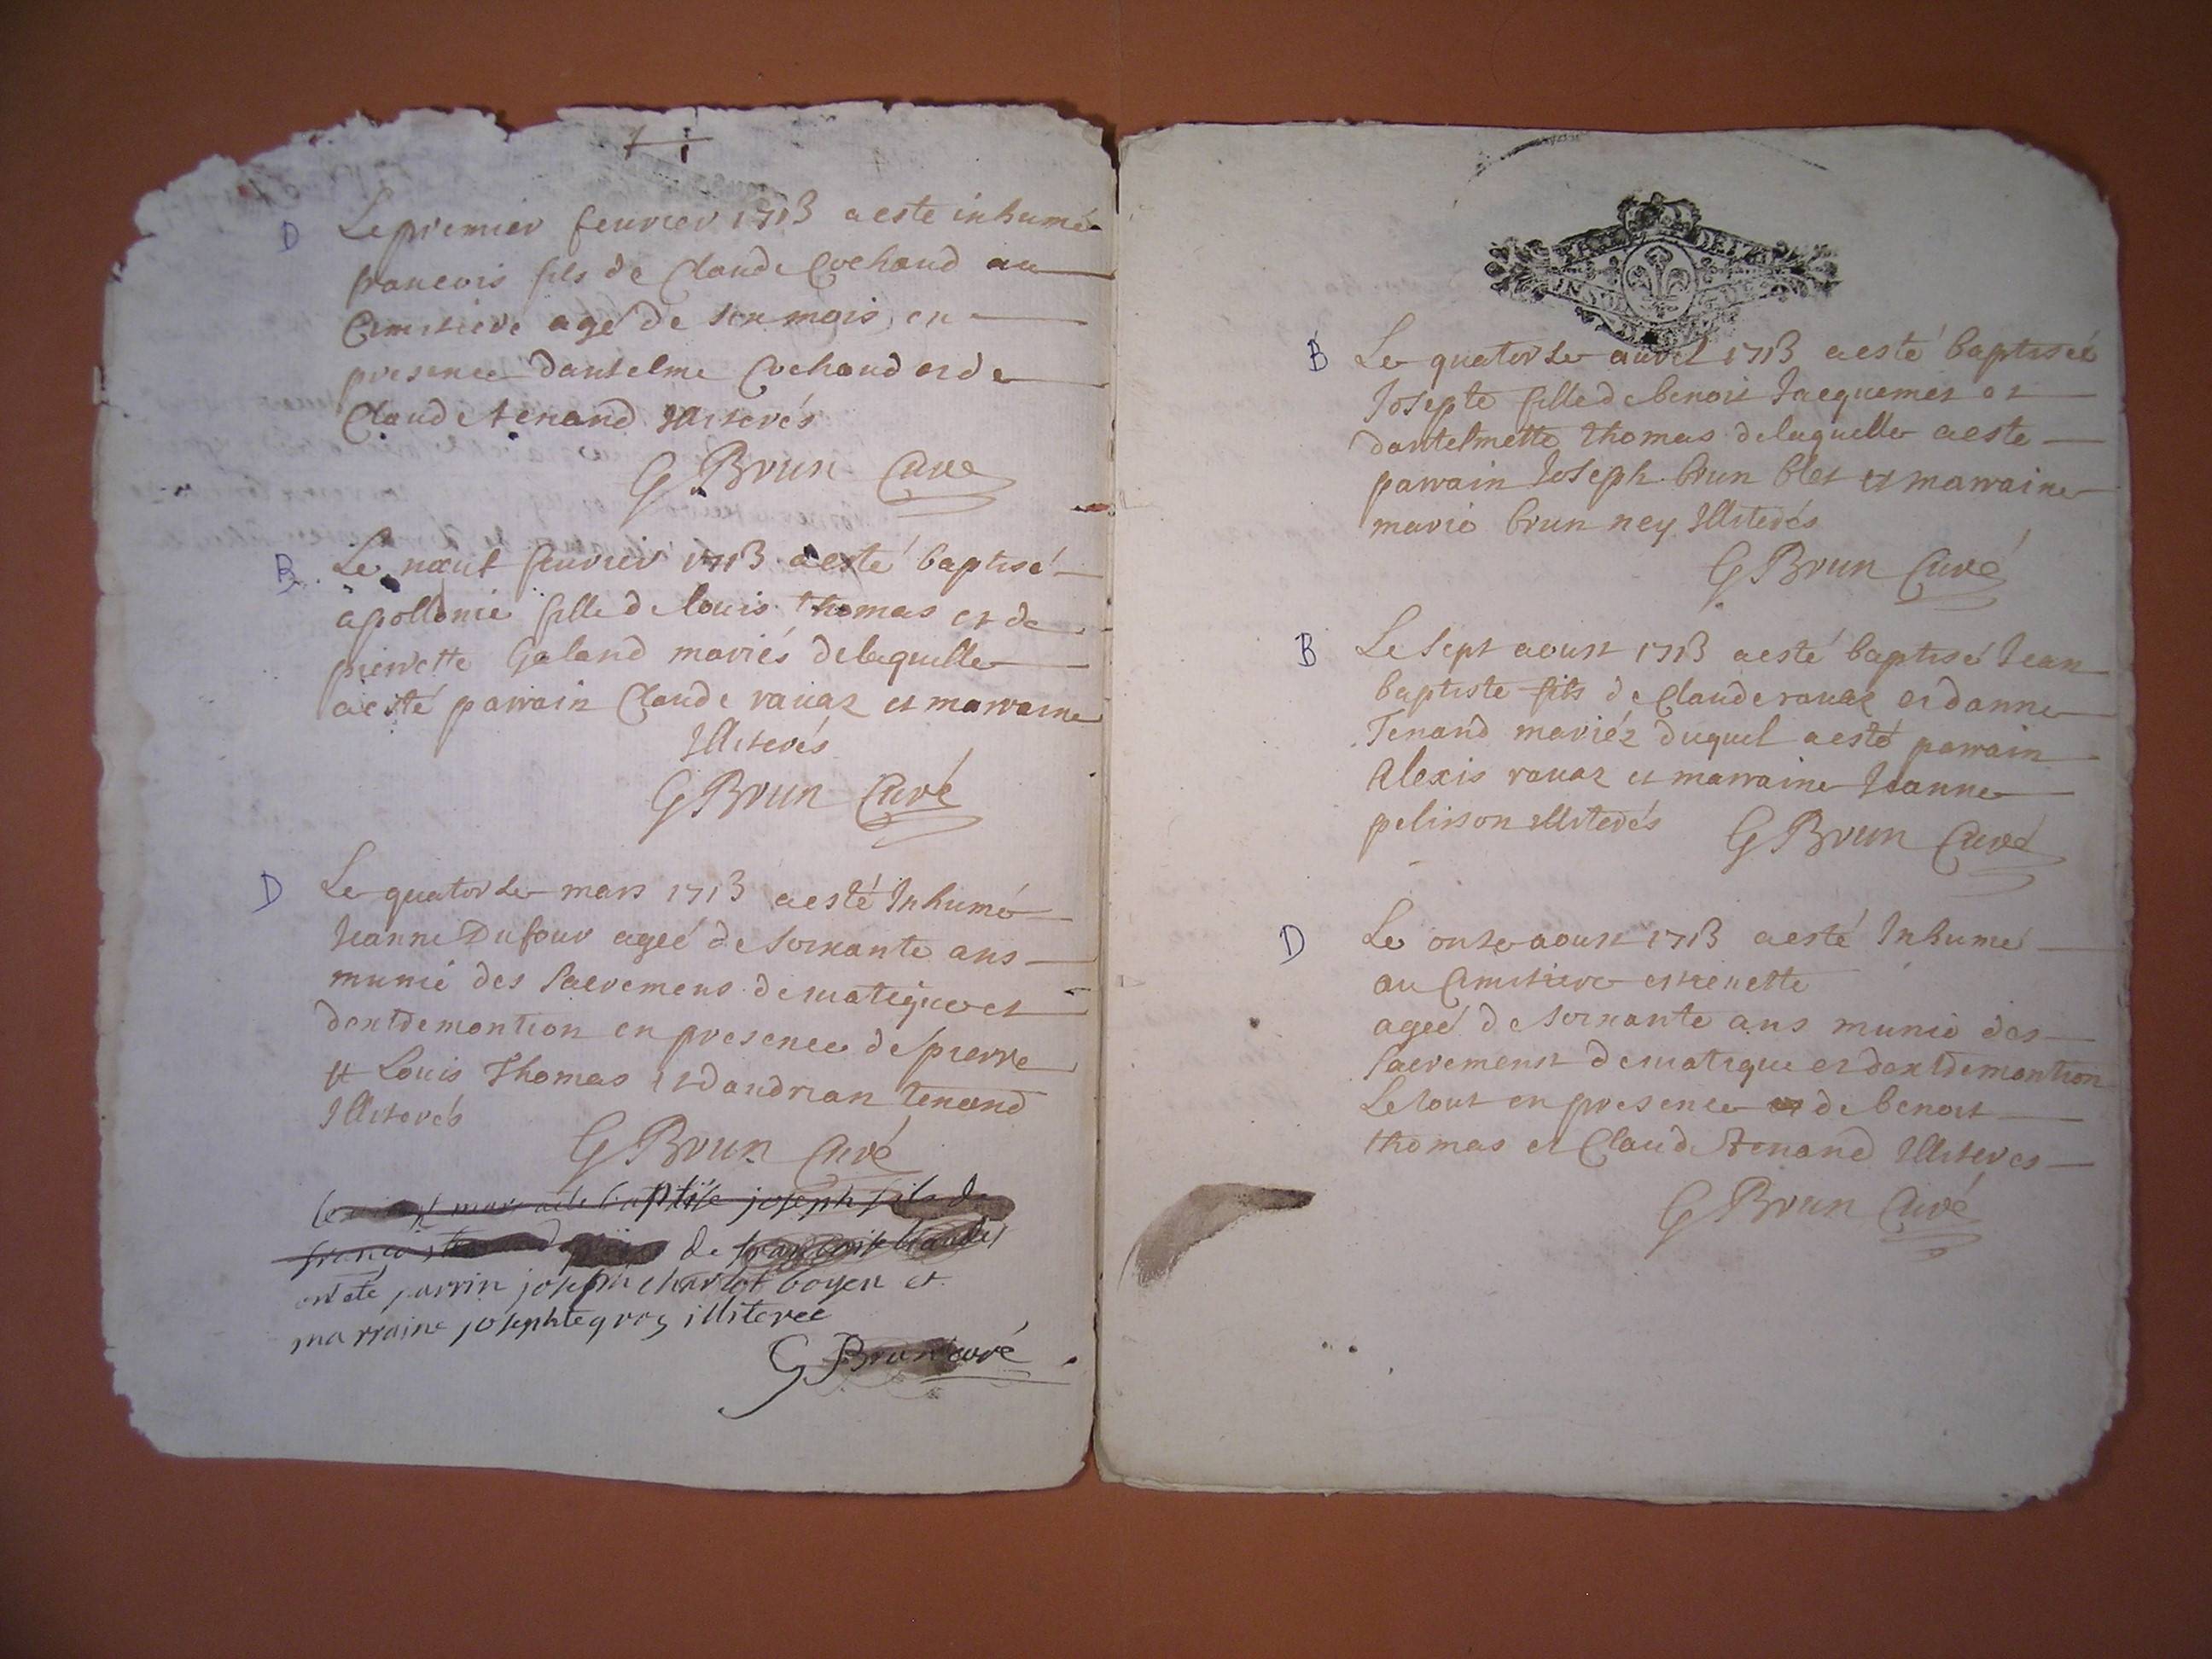 D Le premier feurier 1713 a esté inhumé
francois fils de Claude Cochand au
Cimitiere agé de six mois en
presence dantelme Cochand et de
Claude tenand Illiterés
G Brun Curé
B Le nœuf feurier 1713 a esté baptisé
apollonie fille de louis thomas et de
pierrette Galand mariés de laquelle
a esté parrain Claude rauaz et marraine
Illiterés
G Brun Curé
D Le quatorse mars 1713 a esté Inhumé
Jeanne Dufour ageé de soixante ans
munie des Sacremens de uiatique et
dextremontion en presence de pierre
et Louis Thomas et dandrian tenand
Illiterés
G Brun Curé
mars baptisé joseph fils de
de
ont été parrin joseph charlot boyen et
marraine josephte gros illiteree
G Brun curé
B Le quatorse auril 1713 a esté baptiseé
Josepte fille de benoit Jacquemet et
dantelmette thomas de laquelle a esté
parrain Joseph brun blet et marraine
marie brun ney Illiterés
G Brun Curé
B Le Sept aoust 1713 a esté baptisé Jean
baptiste fils de Claude rauaz et danne
Tenand mariéz duquel a esté parrain
Alexis rauaz et marraine Jeanne
pelisson illiterés G Brun Curé
D Le onse aoust 1713 a esté Inhumé
au Cimitiere
ageé de soixante ans munie des
Sacremens de uiatique et dextremontion
Le tout en presence de benoit
thomas et Claude tenand Illiteres
G Brun Curé